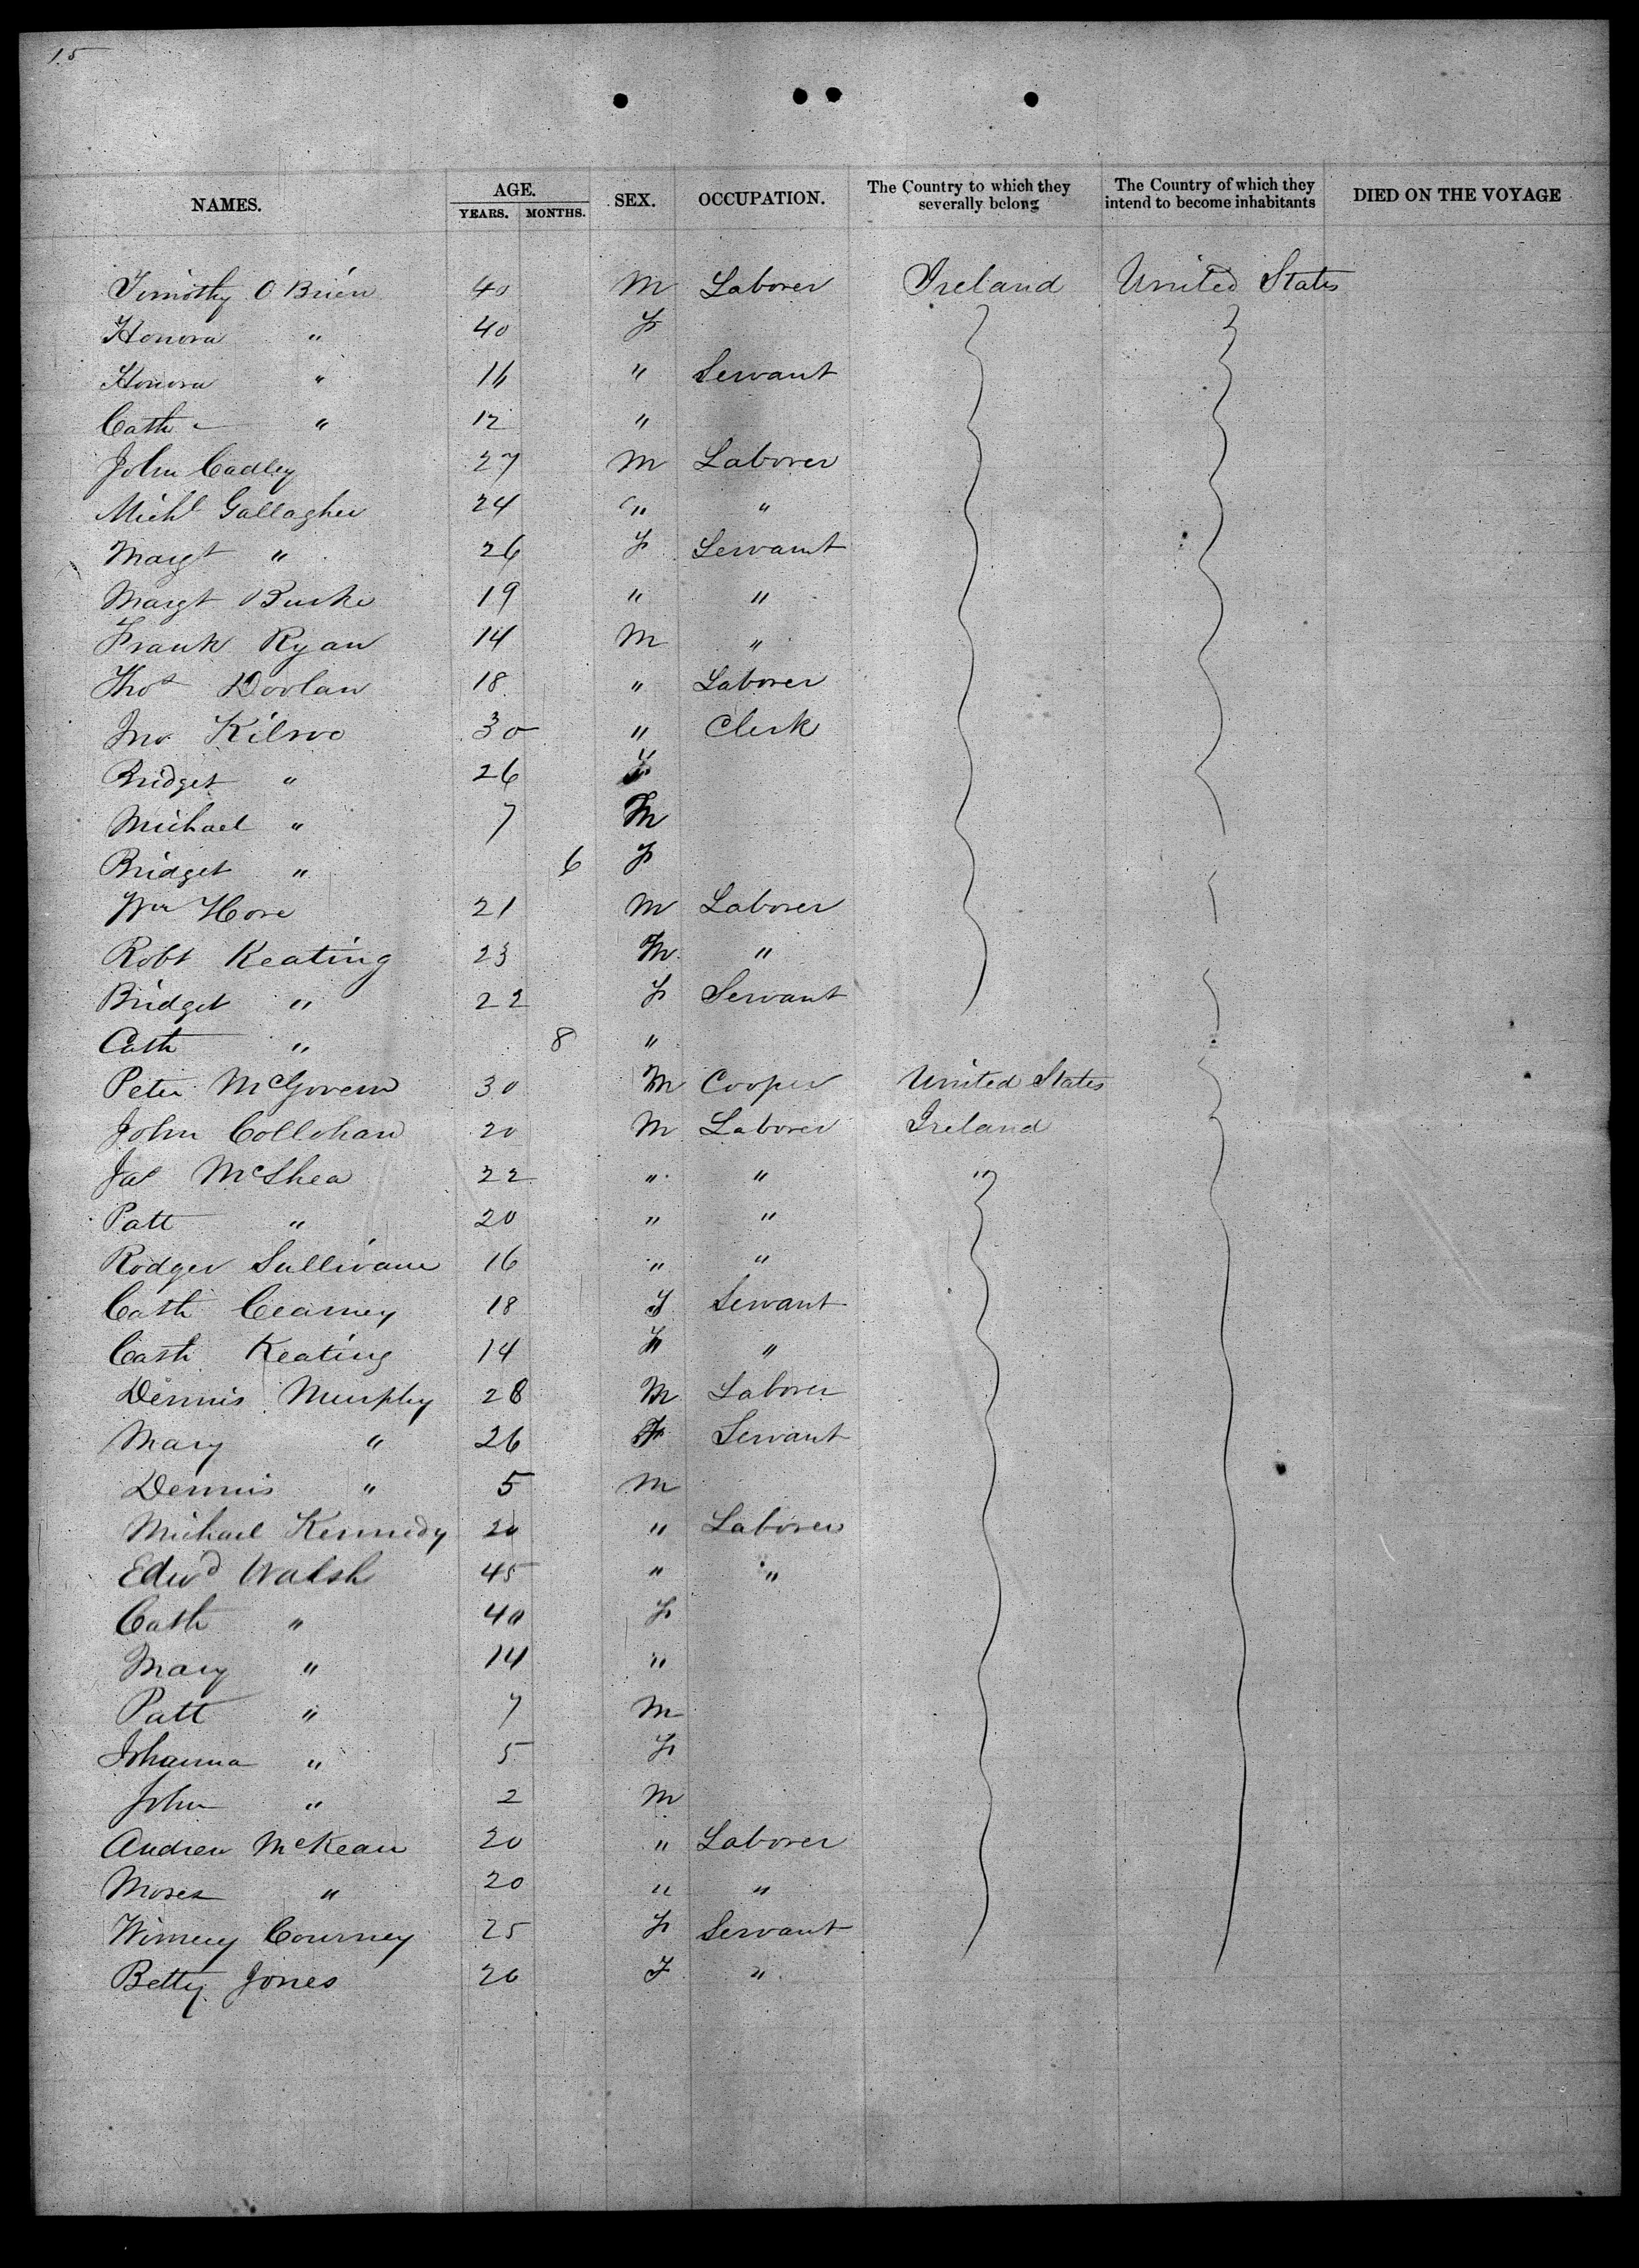 15
NAMES. AGE. YEARS. MONTHS. SEX. OCCUPATION. The Country to which they severally belong The Country of which they intend to become inhabitants DIED ON THE VOYAGE
Timothy O Brien 40 M Laborer Ireland United States
Honora " 40 F
Honora " 16 " Servant
Cath " 12 "
John Cadley 27 M Laborer
Michl Gallagher 24 " "
Margt " 26 F Servant
Margt Burke 19 " "
Frank Ryan 14 M "
Thos Doolan 18 " Laborer
Jno Kilroe 30 " Clerk
Bridget " 26 F
Michael " 7 M
Bridget " 6 F
Wm Hore 21 M Laborer
Robt Keating 23 M "
Bridget " 22 F Servant
Cath " 8 "
Peter McGovern 30 M Cooper United States
John Collohan 20 M Laborer Ireland
Jas McShea 22 " " "
Patt " 20 " "
Rodger Sullivan 16 " "
Cath Cearney 18 F Servant
Cath Keating 14 F "
Dennis Murphy 28 M Laborer
Mary " 26 F Servant
Dennis " 5 M
Michael Kennedy 20 " Laborer
Edwd Walsh 45 " "
Cath " 40 F
Mary " 14 "
Patt " 7 M
Johanna " 5 F
John " 2 M
Andrew McKean 20 " Laborer
Moses " 20 " "
Winney Courney 25 F Servant
Betty Jones 20 F "